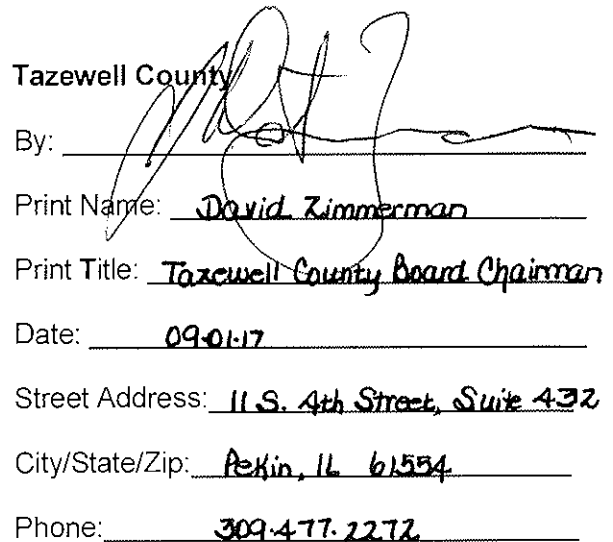 Tazewell County
By:
Print Name: David Zimmerman
Print Title: Tazewell County Board Chairman
Date: 09.01.17
Street Address: 11 S. 4th Street, Suite 432
City/State/Zip: Pekin, IL 61554
Phone: 309.477.2272